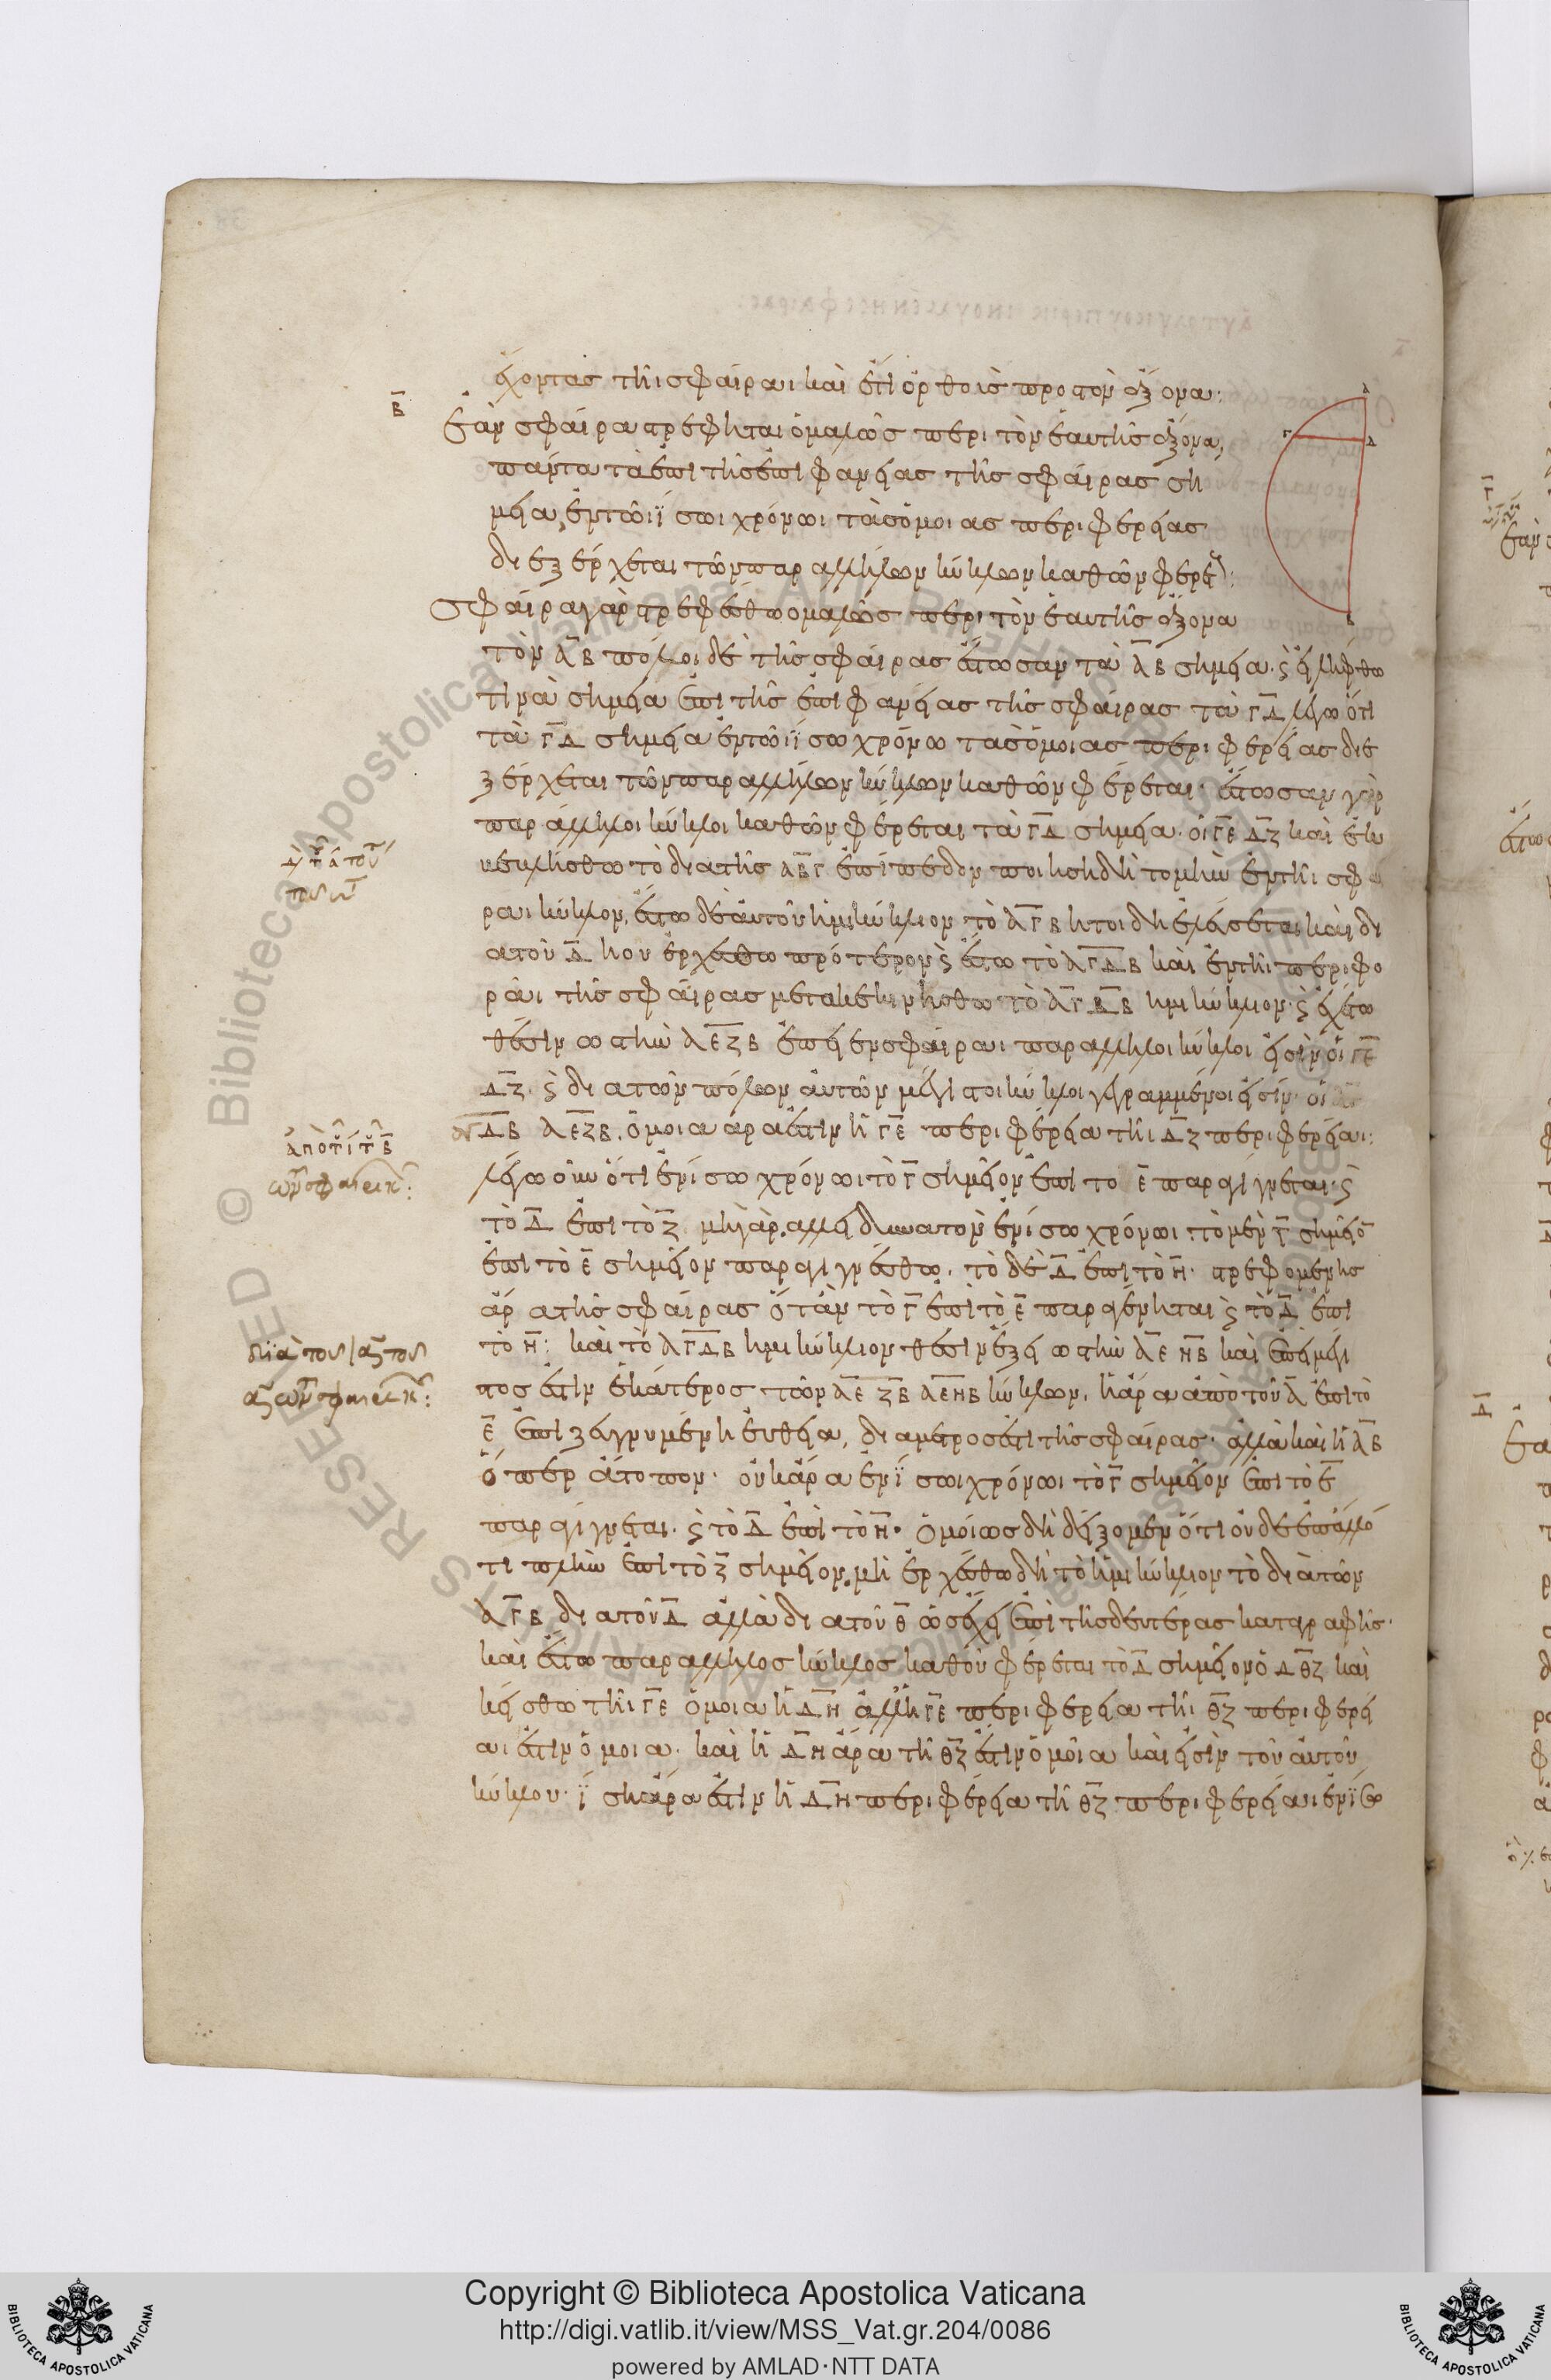 ἔχοντας τῆι σφαίραι καὶ ἔτι ὀρθοὶς προ τὸν ἄξονα:
Β
Ἐὰν σφαίρα στρέφηται ὁμαλῶς περι τὸν ἑαυτῆς ἄξονα,
πάντα τὰ ἐπὶ τῆς ἐπιφανείας τῆς σφαίρας ση
μεία, ἐν τῶι ἴσωι χρόνωι τὰς ὁμοιας περιφερείας
διεξέρχεται τῶν παραλλήλων κύκλων καθ ὧν φέρεται:
Σφαίρα γὰρ στρεφέσθω ὁμαλῶς περι τὸν ἑαυτῆς ἄξονα
τὸν ΑΒ πόλοι δὲ τῆς σφαίρας ἔστωσαν τὰ ΑΒ σημεία. ϛ εἰλήφθω
τινὰ σημεία ἐπι τῆς ἐπιφανείας τῆς σφαίρας τὰ ΓΔ λέγω ὅτι
τὰ ΓΔ σημεία ἐν τῶι ἴσω χρόνω τὰς ὁμοιας περιφερείας διε
ξέρχεται τῶν παραλλήλων κύκλων καθ ὧν φέρεται. ἔστωσαν γὰρ
παράλληλοι κύκλοι καθ ὧν φέρεται τὰ ΓΔ σημεία. οἱ ΓΕ ΔΖ καὶ ἐκ
βεβλήσθω τὸ δια τῆς ΑΒΓ ἐπίπεδον ποιήσει δὴ τομὴν ἐν τῆι σφαί
ραι κύκλον, ἔστω δὲ αὐτοῦ ἡμικύκλιον τὸ ΑΓΒ ἤτοι δὴ ἐλεύσεται καὶ δι
ὰ τοῦ Δ ἢ οὐ ἐρχέσθω πρότερον ϛ ἔστω τὸ ΑΓΔΒ καὶ ἐν τῆι περιφο
ρᾶι τῆς σφαίρας μετακεκινήσθω τὸ ΑΓΔΒ ἡμικύκλιον. ϛ ἐχέτω
θέσιν ὡς τὴν ΑΕΖΒ ἐπεὶ ἐν σφαίραι παράλληλοι κύκλοι εἰσὶν οἱ ΓΕ
ΔΖ. ϛ διὰ τῶν πόλων αὐτῶν μέγιστοι κύκλοι γεγραμμένοι εἰσίν. οἱ ΑΓ
ΔΒ ΑΕΖΒ. ὁμοια ἄρα ἐστιν ἡ ΓΕ περιφέρεια τῆι ΔΖ περιφερείαι:
λέγω οὖν ὅτι ἐν ἴσω χρόνωι τὸ Γ σημεῖον ἐπι το Ε παραγίγνεται. ϛ
τὸ Δ ἐπι τὸ Ζ μὴ γὰρ. ἀλλ εἰ δυνατὸν ἐν ἴσω χρόνωι τὸ μὲν Γ σημεῖον
ἐπι τὸ Ε σημεῖον παραγιγνέσθω. τὸ δὲ Δ ἐπι τὸ Η. στρεφομένης
ἄρα τῆς σφαίρας ὅταν τὸ Γ ἐπι τὸ Ε παραγένηται ϛ τὸ Δ ἐπι
τὸ Η: καὶ τὸ ΑΓΔΒ ἡμικύκλιον θέσιν ἕξει ὡς τὴν ΑΕ ΗΒ καὶ ἐπεὶ μέγι
στος ἐστιν ἑκάτερος τῶν ΑΕ ΖΒ ΑΕΗΒ κύκλων, ἡ ἄρα ἀπὸ τοῦ Α ἐπι τὸ
Ε ἐπιζευγνυμένη εὐθεία, διάμετρος ἐστι τῆς σφαίρας. ἀλλὰ καὶ ἡ ΑΒ
ὅπερ ἄτοπον. οὐκ ἄρα ἐν ἴσωι χρόνωι τὸ Γ σημεῖον ἐπι τὸ Ε
παραγίγνεται. ϛ τὸ Δ ἐπὶ τὸ Η. ὁμοίως δὴ δείξομεν ὅτι οὐδὲ ἐπ ἄλλό
τι πλὴν ἐπι τὸ Ζ σημεῖον. μὴ ἐρχέσθω δὴ τὸ ἡμικύκλιον τὸ διὰ τῶν
ΑΓΒ δια τοῦ Δ ἀλλὰ δια τοῦ Θ ὡς ἔχει ἐπὶ τῆς δευτέρας καταγραφῆς.
καὶ ἔστω παράλληλος κύκλος καθ οὗ φέρεται τὸ Δ σημεῖον ὁ ΔΘΖ καὶ
κείσθω τῆι ΓΕ ὁμοια ἡ ΔΗ ἀλλ ἡ ΓΕ περιφερεία τῆι ΘΖ περιφερεί
αι ἐστιν ὁμοια. καὶ ἡ ΔΗ ἄρα τῆ ΘΖ ἐστιν ὁμοῖα καὶ εἰσὶν τοῦ αὐτοῦ
κύκλου. ἴση ἄρα ἐστὶν ἡ ΔΗ περιφέρεια τῆ ΘΖ περιφερείαι ἐν ἴσω
Α
Γ
Δ
Β
Copyright © Biblioteca Apostolica Vaticana
http://digi.vatlib.it/view/MSS_Vat.gr.204/0086
powered by AMLAD·NTT DATA